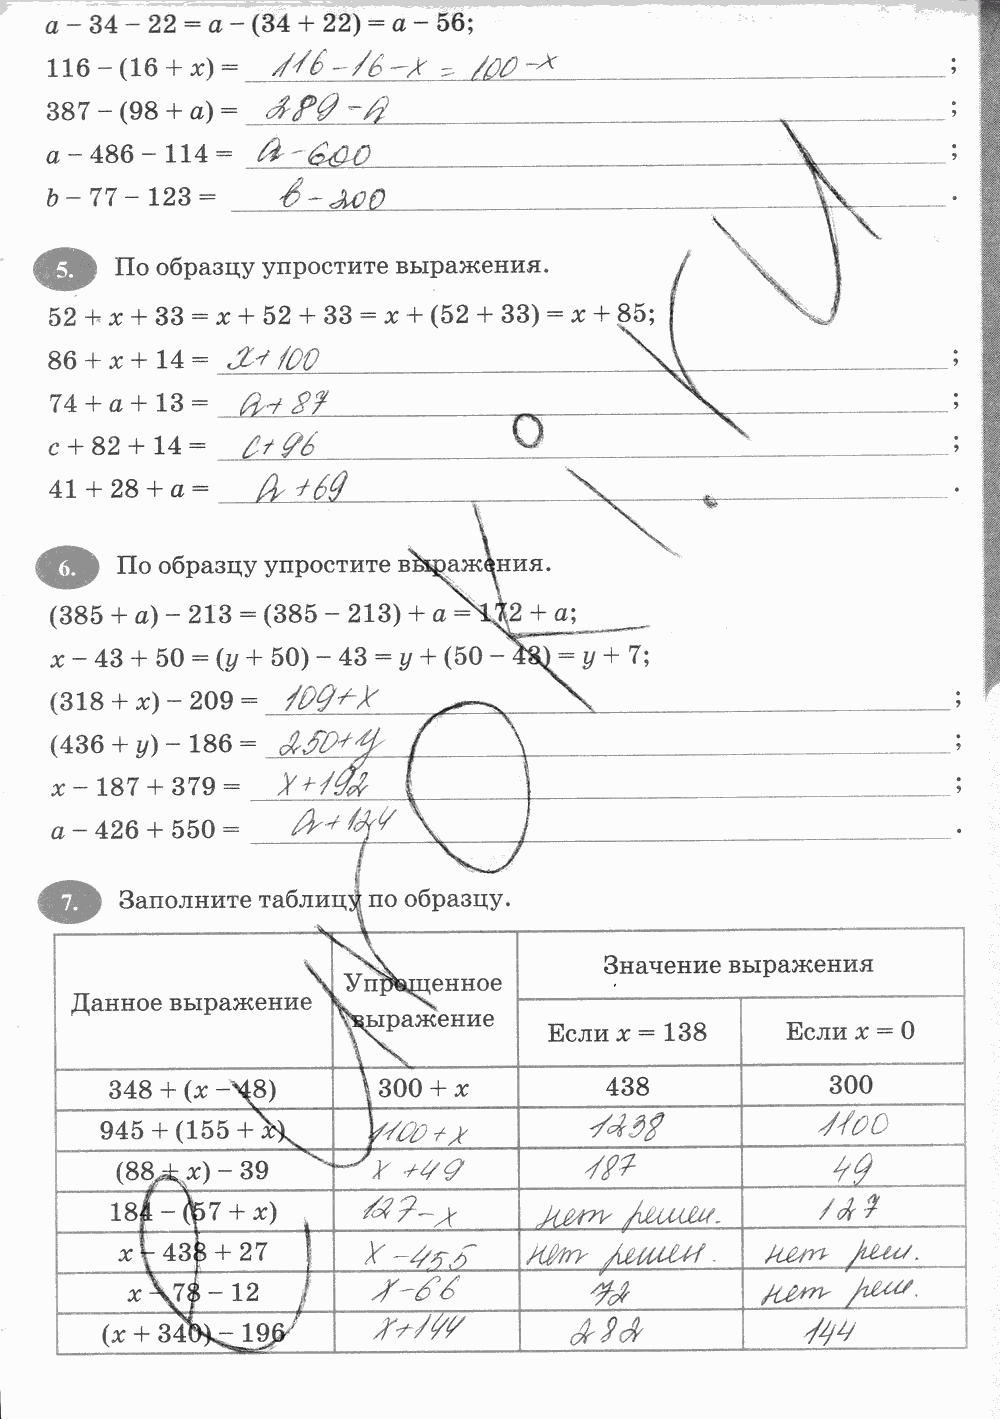 a − 34 − 22 = a − (34 + 22) = a − 56;
116 − (16 + x) = 116 − 16 − x = 100 − x ;
387 − (98 + a) = 289 − a ;
a − 486 − 114 = a − 600 ;
b − 77 − 123 = b − 200 .
5. По образцу упростите выражения.
52 + x + 33 = x + 52 + 33 = x + (52 + 33) = x + 85;
86 + x + 14 = x + 100 ;
74 + a + 13 = a + 87 ;
c + 82 + 14 = c + 96 ;
41 + 28 + a = a + 69 .
6. По образцу упростите выражения.
(385 + a) − 213 = (385 − 213) + a = 172 + a;
x − 43 + 50 = (y + 50) − 43 = y + (50 − 43) = y + 7;
(318 + x) − 209 = 109 + x ;
(436 + y) − 186 = 250 + y ;
x − 187 + 379 = x + 192 ;
a − 426 + 550 = a + 124 .
7. Заполните таблицу по образцу.
Данное выражение Упрощенное выражение Значение выражения
Если x = 138 Если x = 0
348 + (x − 48) 300 + x 438 300
945 + (155 + x) 1100 + x 1238 1100
(88 + x) − 39 x + 49 187 49
184 − (57 + x) 127 − x нет решен. 127
x − 438 + 27 x − 455 нет решен. нет реш.
x − 78 − 12 x − 66 72 нет реше.
(x + 340) − 196 x + 144 282 144